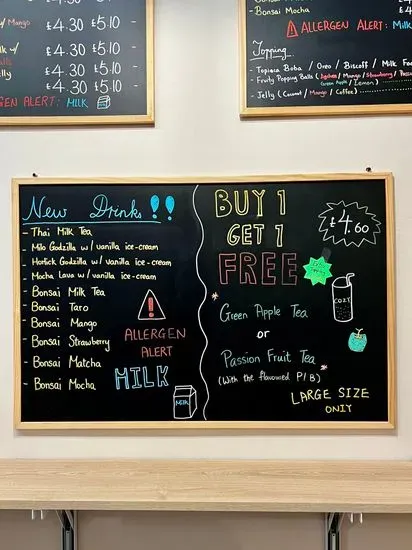 w/ Mango £4.30 £5.10
£4.30 £5.10
Milk w/ £4.30 £5.10
£4.30 £5.10
ALLERGEN ALERT: MILK
- Bonsai Mocha
ALLERGEN ALERT: Milk
Topping
- Tapioca Boba / Oreo / Biscoff / Milk
- Fruity Popping Balls (Lychee / Mango / Strawberry /
Green Apple / Lemon)
- Jelly (Coconut / Mango / Coffee)
New Drinks!!
- Thai Milk Tea
- Milo Godzilla w/ vanilla ice-cream
- Horlick Godzilla w/ vanilla ice-cream
- Mocha Lava w/ vanilla ice-cream
- Bonsai Milk Tea
- Bonsai Taro
- Bonsai Mango
- Bonsai Strawberry
- Bonsai Matcha
- Bonsai Mocha
ALLERGEN
ALERT
MILK
MILK
BUY 1
GET 1
FREE
£4.60
COZY
* Green Apple Tea
or
Passion Fruit Tea *
(With the flavoured P/B)
LARGE SIZE
ONLY